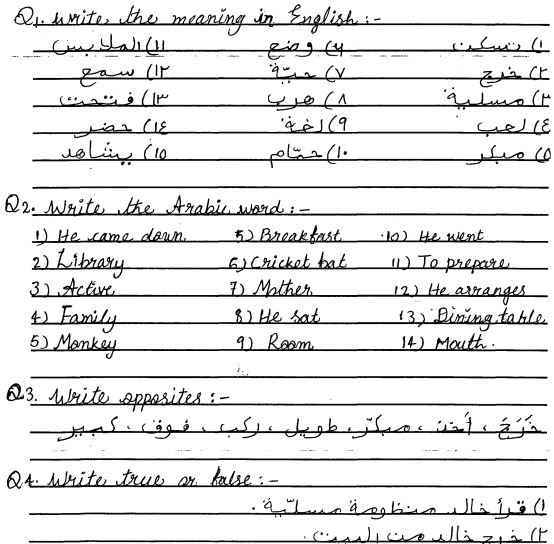 Q1. Write the meaning in English :-
١) تسكن ٦) وضع ١١) الملابس
٢) خرج ٧) حبّة ١٢) سمع
٣) مسلية ٨) هرب ١٣) فتحت
٤) لعب ٩) لغة ١٤) حضر
٥) مبكر ١٠) حمّام ١٥) يشاهد
Q2. Write the Arabic word :-
1) He came down 5) Breakfast 10) He went
2) Library 6) Cricket bat 11) To prepare
3) Active 7) Mother 12) He arranges
4) Family 8) He sat 13) Dining table
5) Monkey 9) Room 14) Mouth.
Q3. Write opposites :-
خَرَجَ ، أَخَذَ ، مبكّر ، طويل ، ركب ، فوق ، كبير
Q4. Write true or false :-
١) قرأ خالد منظومة مسليّة .
٢) خرج خالد من البيت .